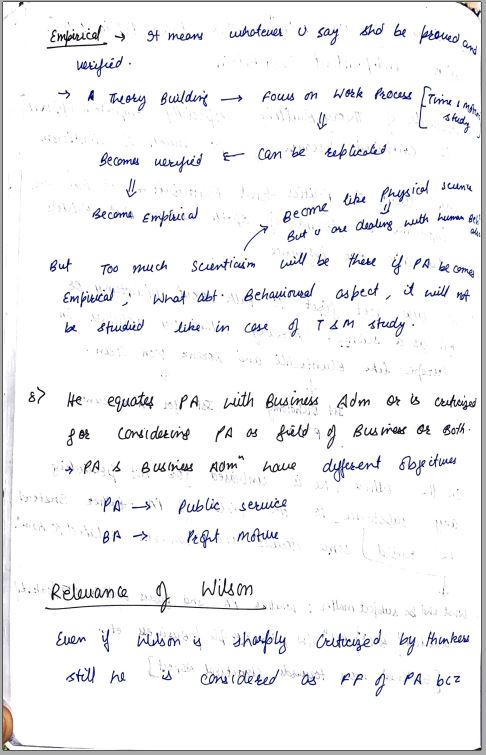 Empirical → It means whatever U say shd be proved and
verified.
→ A Theory Building → Focus on Work Process [Time & motion
study
⇓
Becomes verified ← Can be replicated
⇓
Become Empirical
Become like Physical science
⇓
But U are dealing with human
But Too much Scienticism will be there if PA becomes
Empirical, What abt. Behavioural aspect, it will not
be studied like in case of T&M study.
8> He equates PA with Business Adm or is criticized
for considering PA as field of Business or Both.
→ PA & Business Admn have different objectives
PA → Public service
BA → Profit Motive
Relevance of Wilson
Even if Wilson is sharply criticized by thinkers
still he is considered as FF of PA bcz